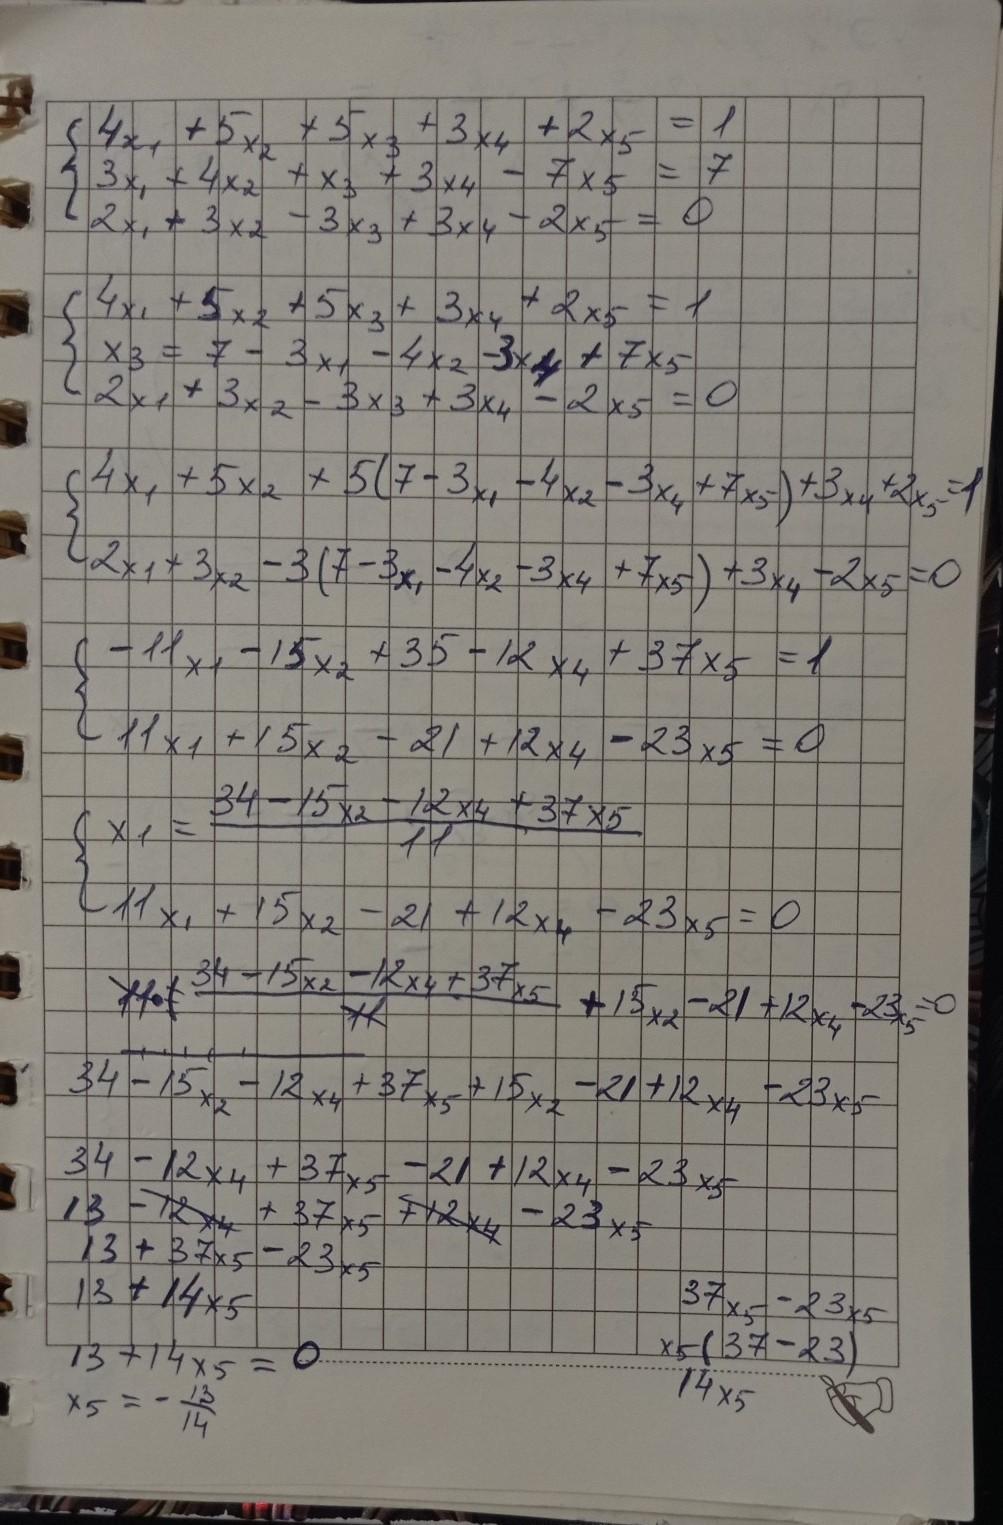 4x₁ + 5x₂ + 5x₃ + 3x₄ + 2x₅ = 1
3x₁ + 4x₂ + x₃ + 3x₄ - 7x₅ = 7
2x₁ + 3x₂ - 3x₃ + 3x₄ - 2x₅ = 0
4x₁ + 5x₂ + 5x₃ + 3x₄ + 2x₅ = 1
x₃ = 7 - 3x₁ - 4x₂ - 3x₄ + 7x₅
2x₁ + 3x₂ - 3x₃ + 3x₄ - 2x₅ = 0
4x₁ + 5x₂ + 5(7 - 3x₁ - 4x₂ - 3x₄ + 7x₅) + 3x₄ + 2x₅ = 1
2x₁ + 3x₂ - 3(7 - 3x₁ - 4x₂ - 3x₄ + 7x₅) + 3x₄ - 2x₅ = 0
-11x₁ - 15x₂ + 35 - 12x₄ + 37x₅ = 1
11x₁ + 15x₂ - 21 + 12x₄ - 23x₅ = 0
x₁ = (34 - 15x₂ - 12x₄ + 37x₅)/11
11x₁ + 15x₂ - 21 + 12x₄ - 23x₅ = 0
11 · (34 - 15x₂ - 12x₄ + 37x₅)/11 + 15x₂ - 21 + 12x₄ - 23x₅ = 0
34 - 15x₂ - 12x₄ + 37x₅ + 15x₂ - 21 + 12x₄ - 23x₅
34 - 12x₄ + 37x₅ - 21 + 12x₄ - 23x₅
13 - 12x₄ + 37x₅ + 12x₄ - 23x₅
13 + 37x₅ - 23x₅
13 + 14x₅
13 + 14x₅ = 0
x₅ = - 13/14
37x₅ - 23x₅
x₅(37 - 23)
14x₅